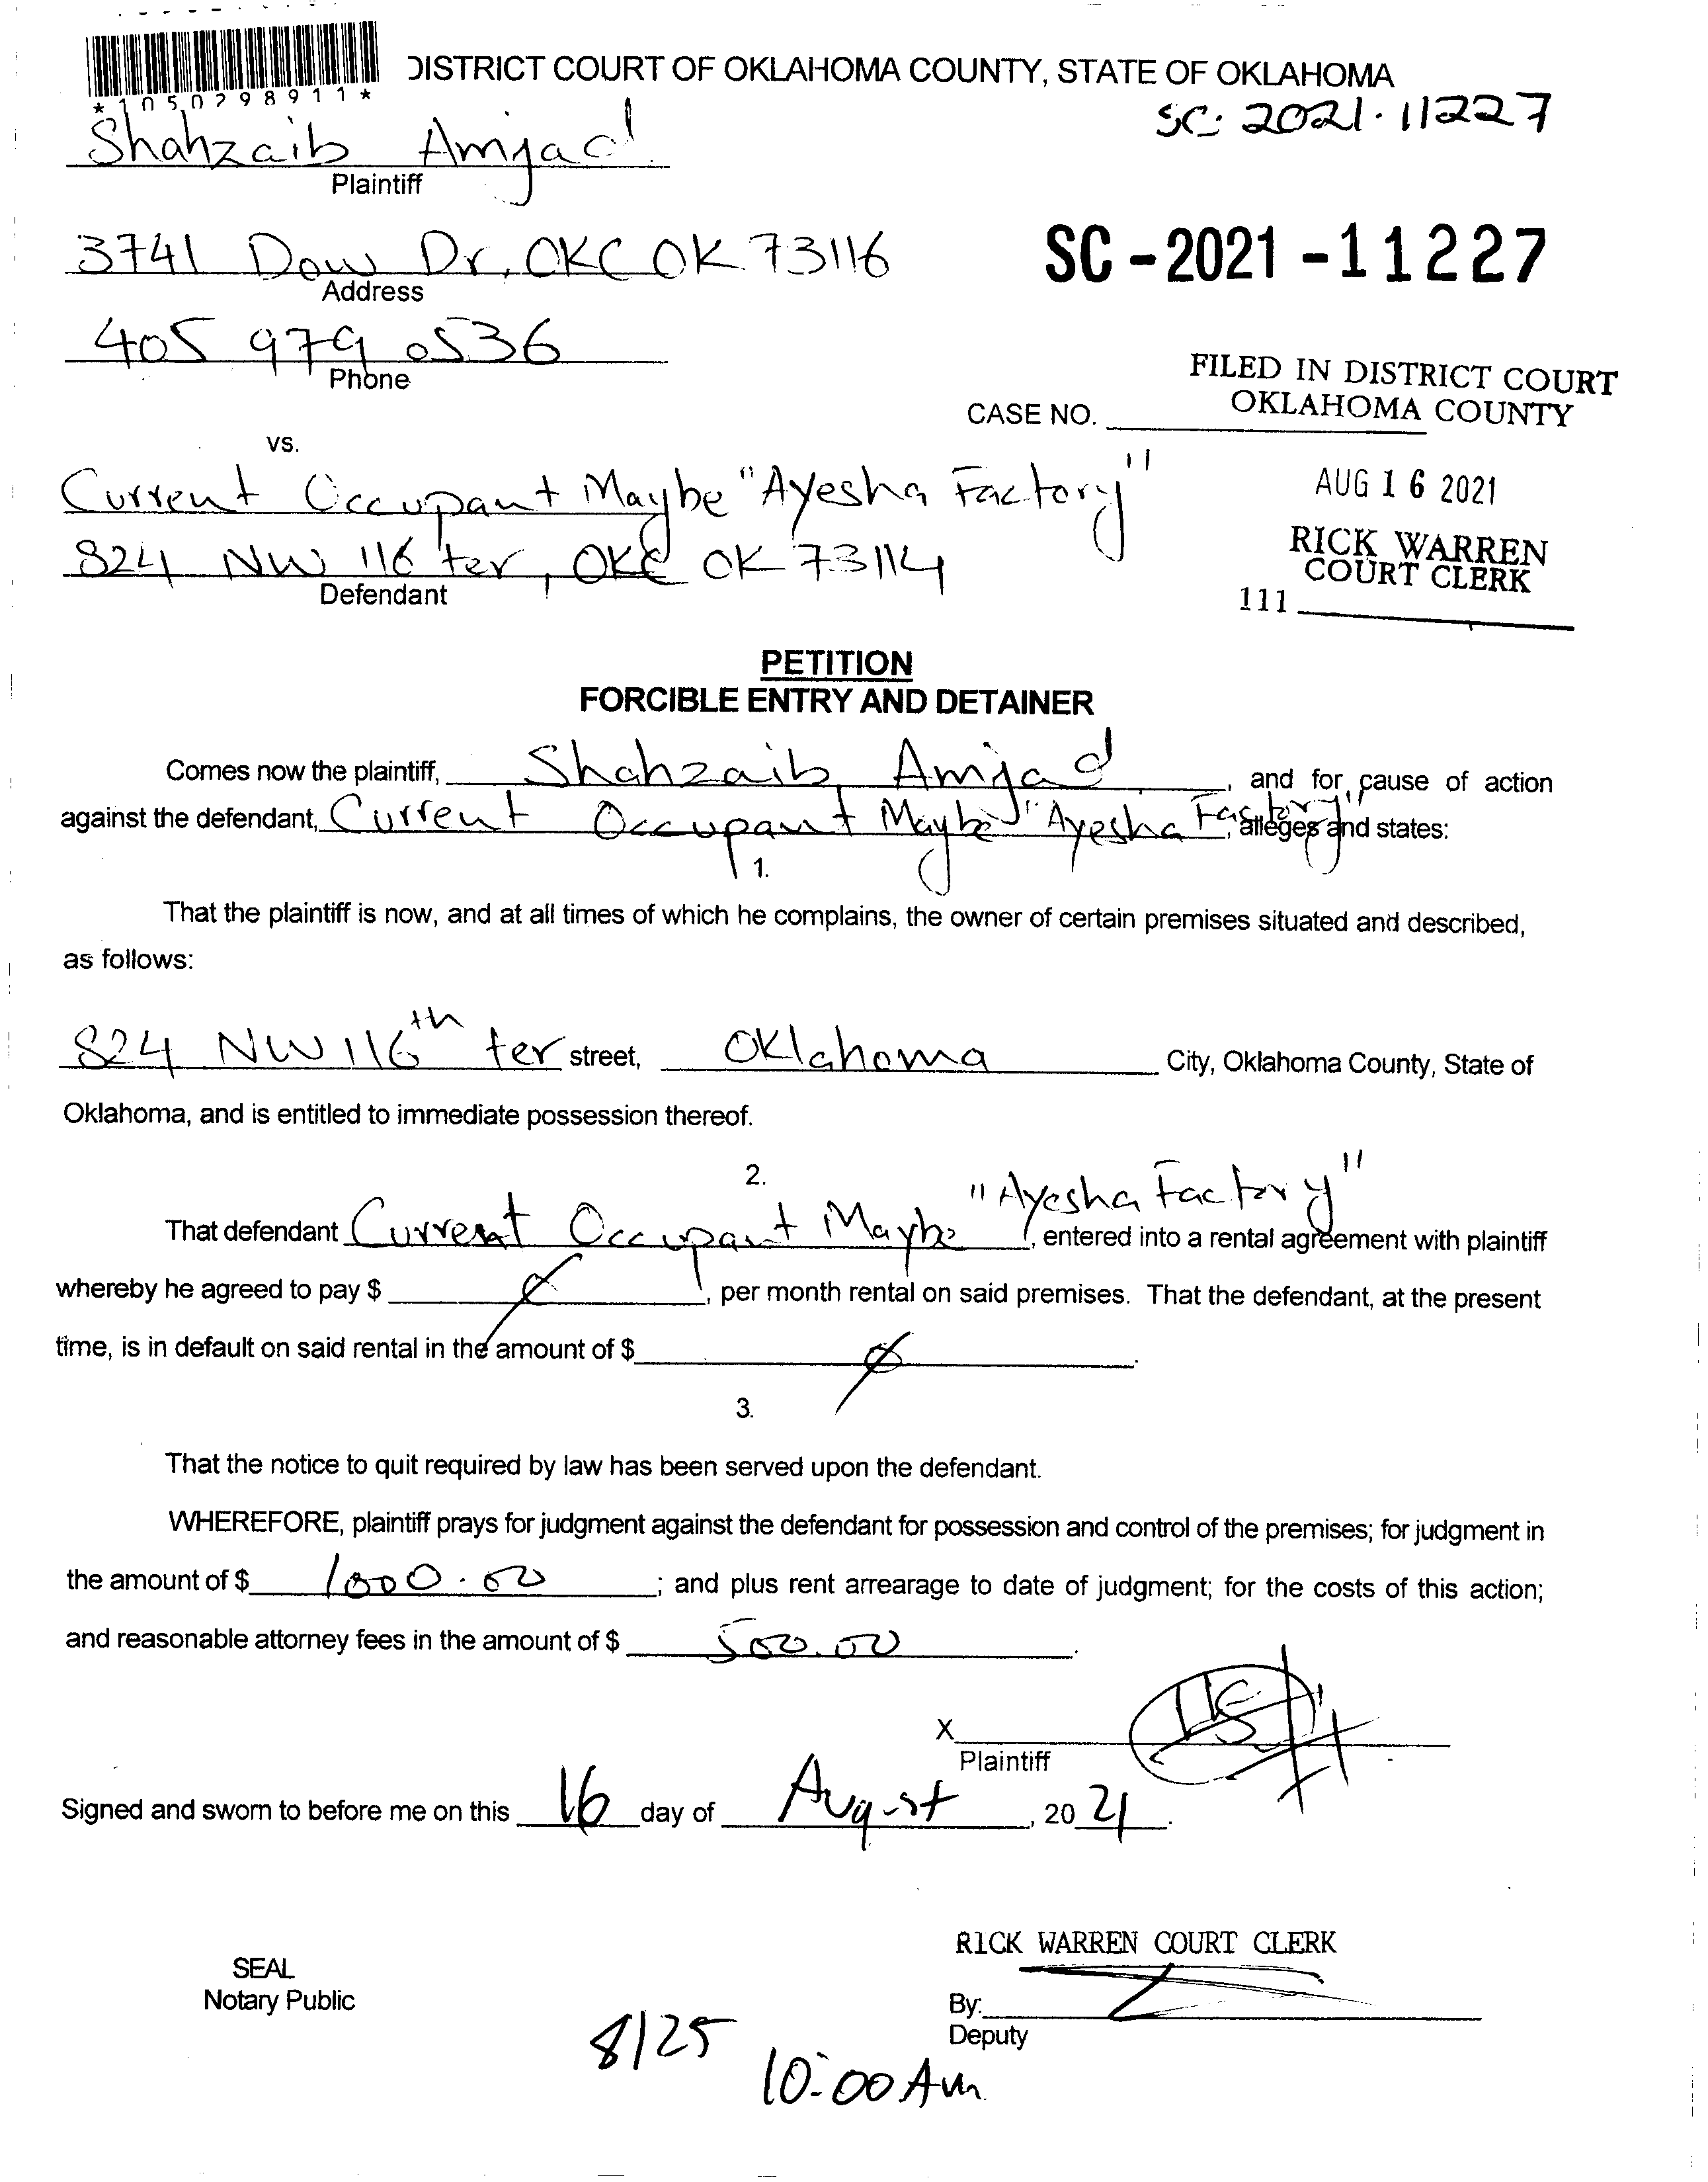 *1050298911*
DISTRICT COURT OF OKLAHOMA COUNTY, STATE OF OKLAHOMA
SC: 2021-11227
Shahzaib Amjad
Plaintiff
3741 Dow Dr, OKC OK 73116
Address
SC-2021-11227
405 979 0536
Phone
FILED IN DISTRICT COURT
OKLAHOMA COUNTY
CASE NO.
vs.
Current Occupant Maybe "Ayesha Factory"
AUG 16 2021
824 NW 116 ter, OKC OK 73114
Defendant
RICK WARREN
COURT CLERK
111
PETITION
FORCIBLE ENTRY AND DETAINER
Comes now the plaintiff, Shahzaib Amjad, and for cause of action
against the defendant, Current Occupant Maybe "Ayesha Factory", alleges and states:
1.
That the plaintiff is now, and at all times of which he complains, the owner of certain premises situated and described,
as follows:
824 NW 116th ter street, Oklahoma City, Oklahoma County, State of
Oklahoma, and is entitled to immediate possession thereof.
2.
That defendant Current Occupant Maybe "Ayesha Factory", entered into a rental agreement with plaintiff
whereby he agreed to pay $ Ø, per month rental on said premises. That the defendant, at the present
time, is in default on said rental in the amount of $ Ø.
3.
That the notice to quit required by law has been served upon the defendant.
WHEREFORE, plaintiff prays for judgment against the defendant for possession and control of the premises; for judgment in
the amount of $ 1000.00; and plus rent arrearage to date of judgment; for the costs of this action;
and reasonable attorney fees in the amount of $ 500.00.
X
Plaintiff
Signed and sworn to before me on this 16 day of August, 2021.
RICK WARREN COURT CLERK
SEAL
Notary Public
By:
Deputy
8/25
10:00 Am